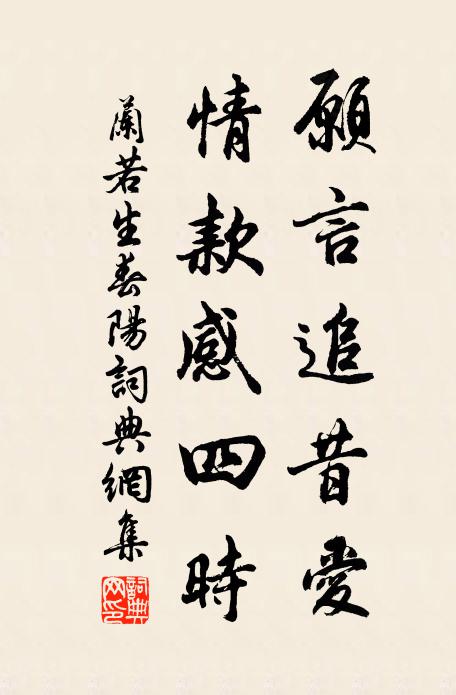 願言追昔愛
情款感四時
蘭若生春陽詞典網集
詞典網印